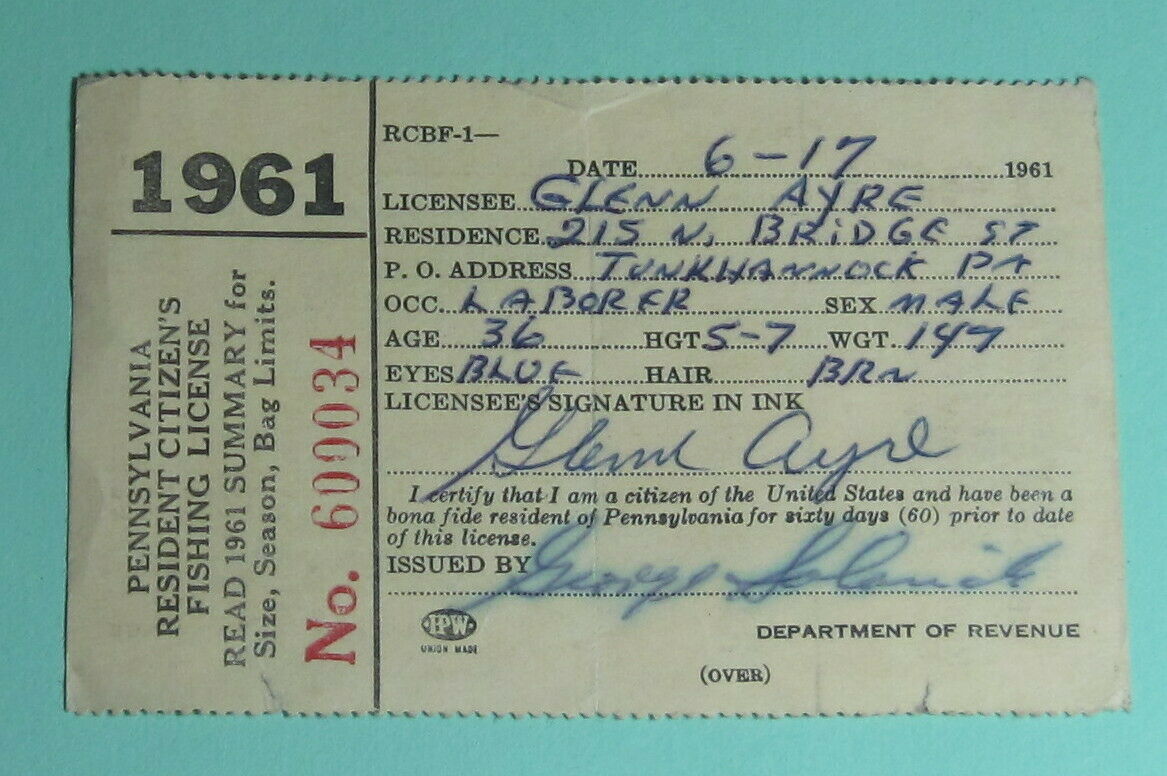 1961
PENNSYLVANIA
RESIDENT CITIZEN'S
FISHING LICENSE
READ 1961 SUMMARY for
Size, Season, Bag Limits.
No. 600034
RCBF-1—
DATE 6-17 1961
LICENSEE GLENN AYRE
RESIDENCE 215 N. BRIDGE ST
P. O. ADDRESS TUNKHANNOCK PA
OCC. LABORER SEX MALE
AGE 36 HGT 5-7 WGT. 147
EYES BLUE HAIR BRN
LICENSEE'S SIGNATURE IN INK
Glenn Ayre
I certify that I am a citizen of the United States and have been a
bona fide resident of Pennsylvania for sixty days (60) prior to date
of this license.
ISSUED BY George
IPW
UNION MADE
DEPARTMENT OF REVENUE
(OVER)